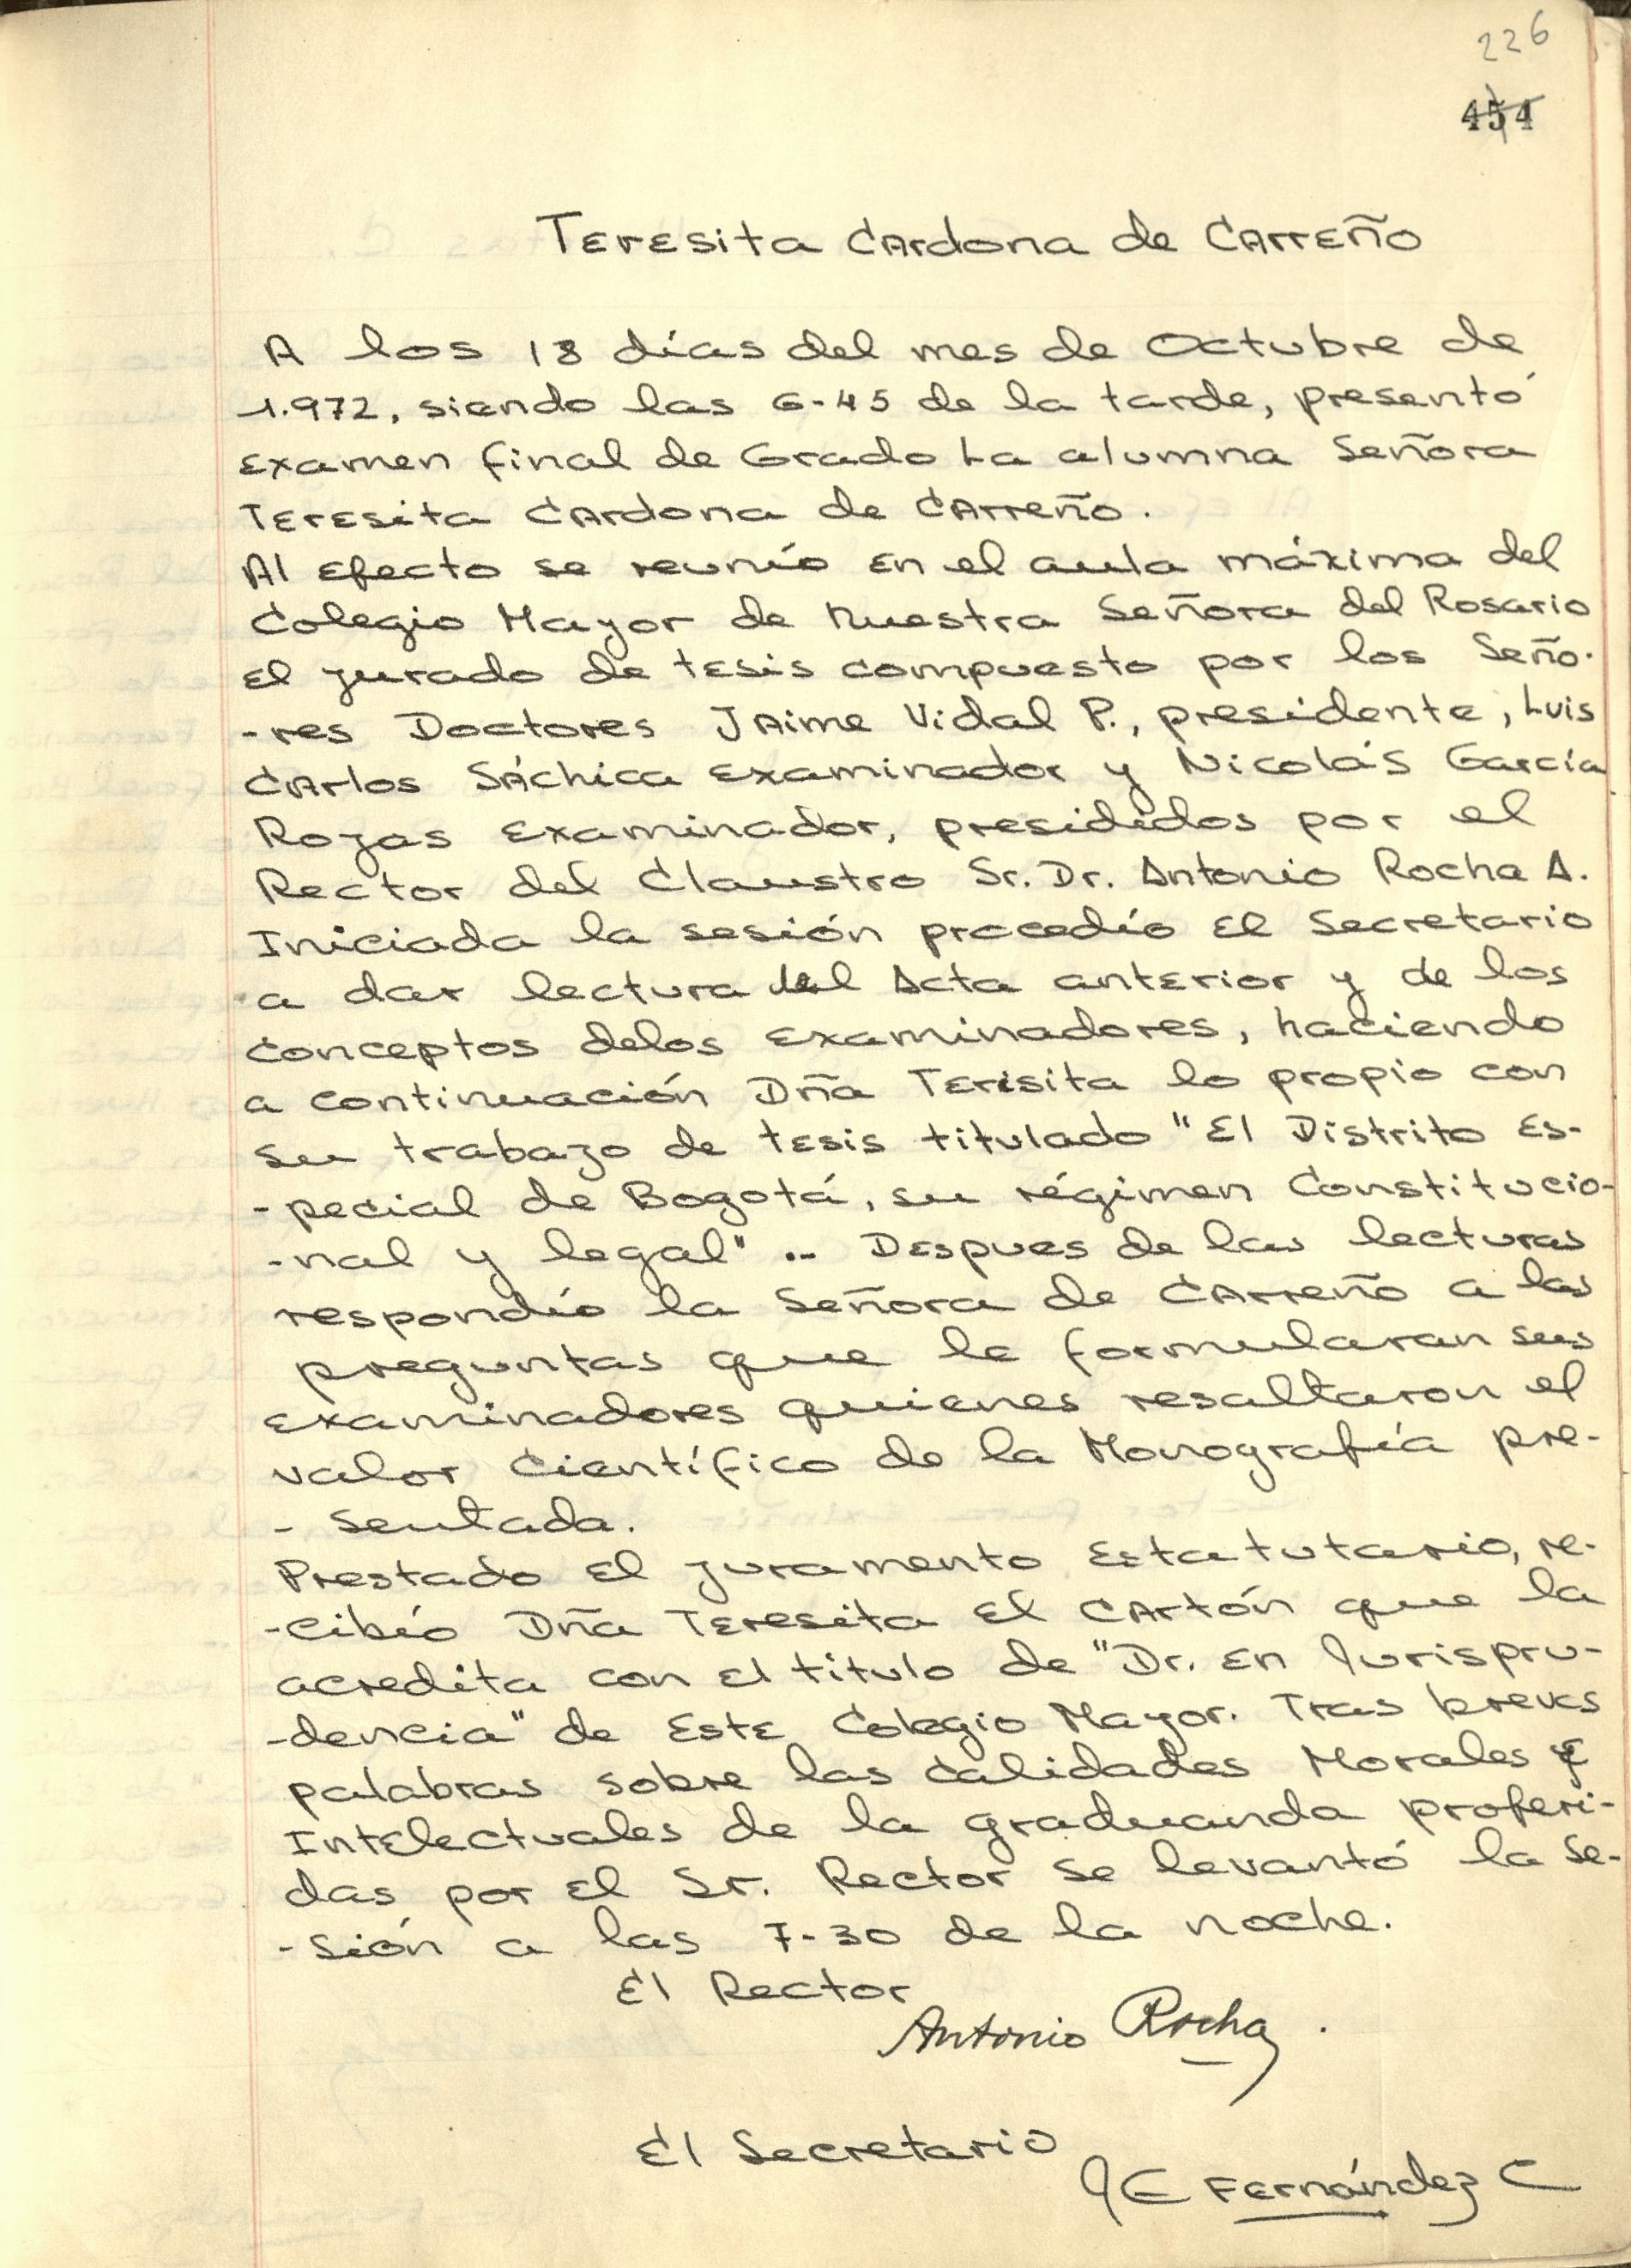 226
454
Teresita Cardona de Carreño
A los 18 días del mes de Octubre de
1.972, siendo las 6-45 de la tarde, presentó
examen final de Grado La alumna Señora
Teresita Cardona de Carreño.
Al efecto se reunío en el aula máxima del
Colegio Mayor de Nuestra Señora del Rosario
el jurado de tesis compuesto por los Seño-
-res Doctores Jaime Vidal P., presidente, Luis
Carlos Sáchica examinador y Nicolás García
Rojas examinador, presididos por el
Rector del Claustro Sr. Dr. Antonio Rocha A.
Iniciada la sesión procedío el Secretario
a dar lectura del Acta anterior y de los
conceptos delos examinadores, haciendo
a continuación Dña Terisita lo propio con
su trabajo de tesis titulado "El Distrito Es-
-pecial de Bogotá, su régimen Constitucio-
-nal y legal" .. Despues de las lecturas
respondío la Señora de Carreño a las
preguntas que le formularan sus
examinadores quienes resaltaron el
valor Científico de la Monografía pre-
- sentada.
Prestado el juramento Estatutario, re-
-cibió Dña Teresita el cartón que la
acredita con el titulo de "Dr. en Jurispru-
-dencia" de Este Colegio Mayor. Tras breves
palabras sobre las Calidades Morales y
Intelectuales de la graduanda proferi-
das por el Sr. Rector se levantó la Se-
-sión a las 7-30 de la noche.
El Rector
Antonio Rocha .
El Secretario
JE Fernández C